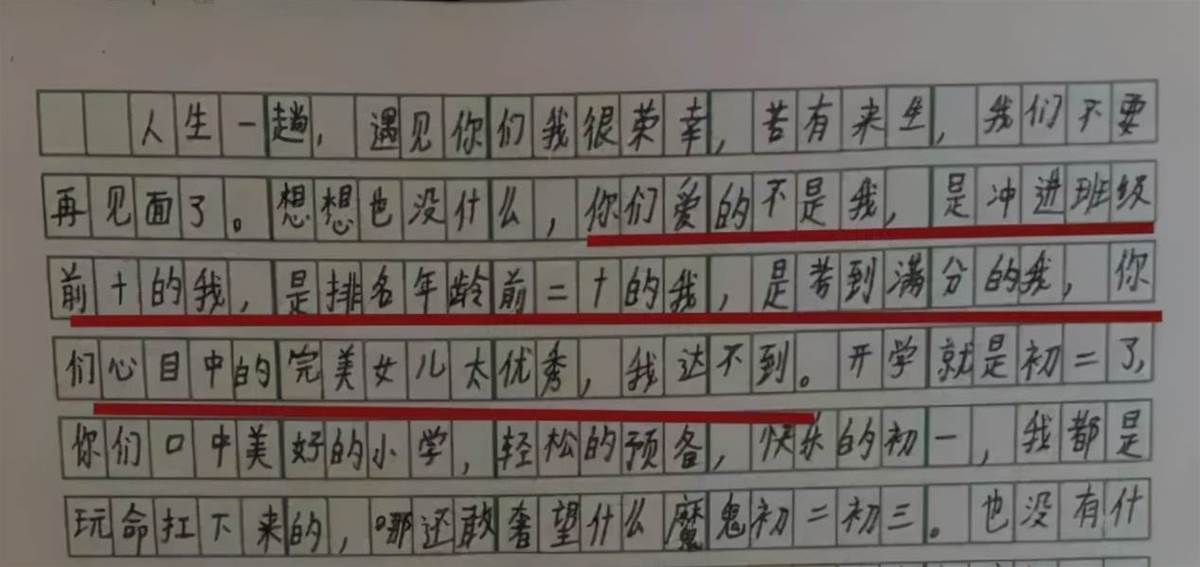 人生一趟，遇见你们我很荣幸，苦有来生，我们不要
再见面了。想想也没什么，你们爱的不是我，是冲进班级
前十的我，是排名年龄前二十的我，是考到满分的我，你
们心目中的完美女儿太优秀，我达不到。开学就是初二了，
你们口中美好的小学，轻松的预备，快乐的初一，我都是
玩命扛下来的，哪还敢奢望什么魔鬼初二初三。也没有什